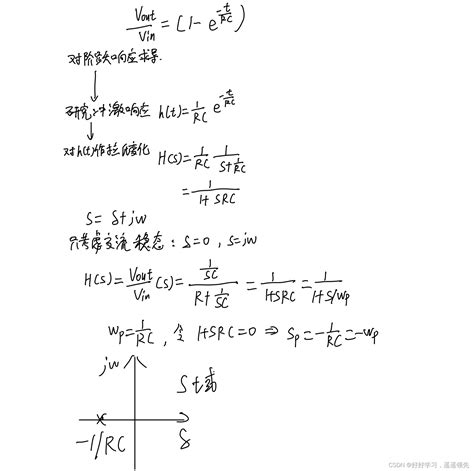 Vout/Vin = (1 - e^(-t/RC))
对阶跃响应求导.
研究冲激响应 h(t)=1/RC e^(-t/RC)
对h(t)作拉氏变化 H(s)=1/RC 1/(S+1/RC)
=1/(1+SRC)
S= δ+jw
只考虑交流稳态: δ=0, s=jw
H(s)=Vout/Vin(s)=(1/SC)/(R+1/SC)=1/(1+SRC)=1/(1+S/wp)
wp=1/RC, 令 1+SRC=0 ⇒ Sp=-1/RC=-wp
jw
S域
-1/RC
δ
CSDN @好好学习，遥遥领先